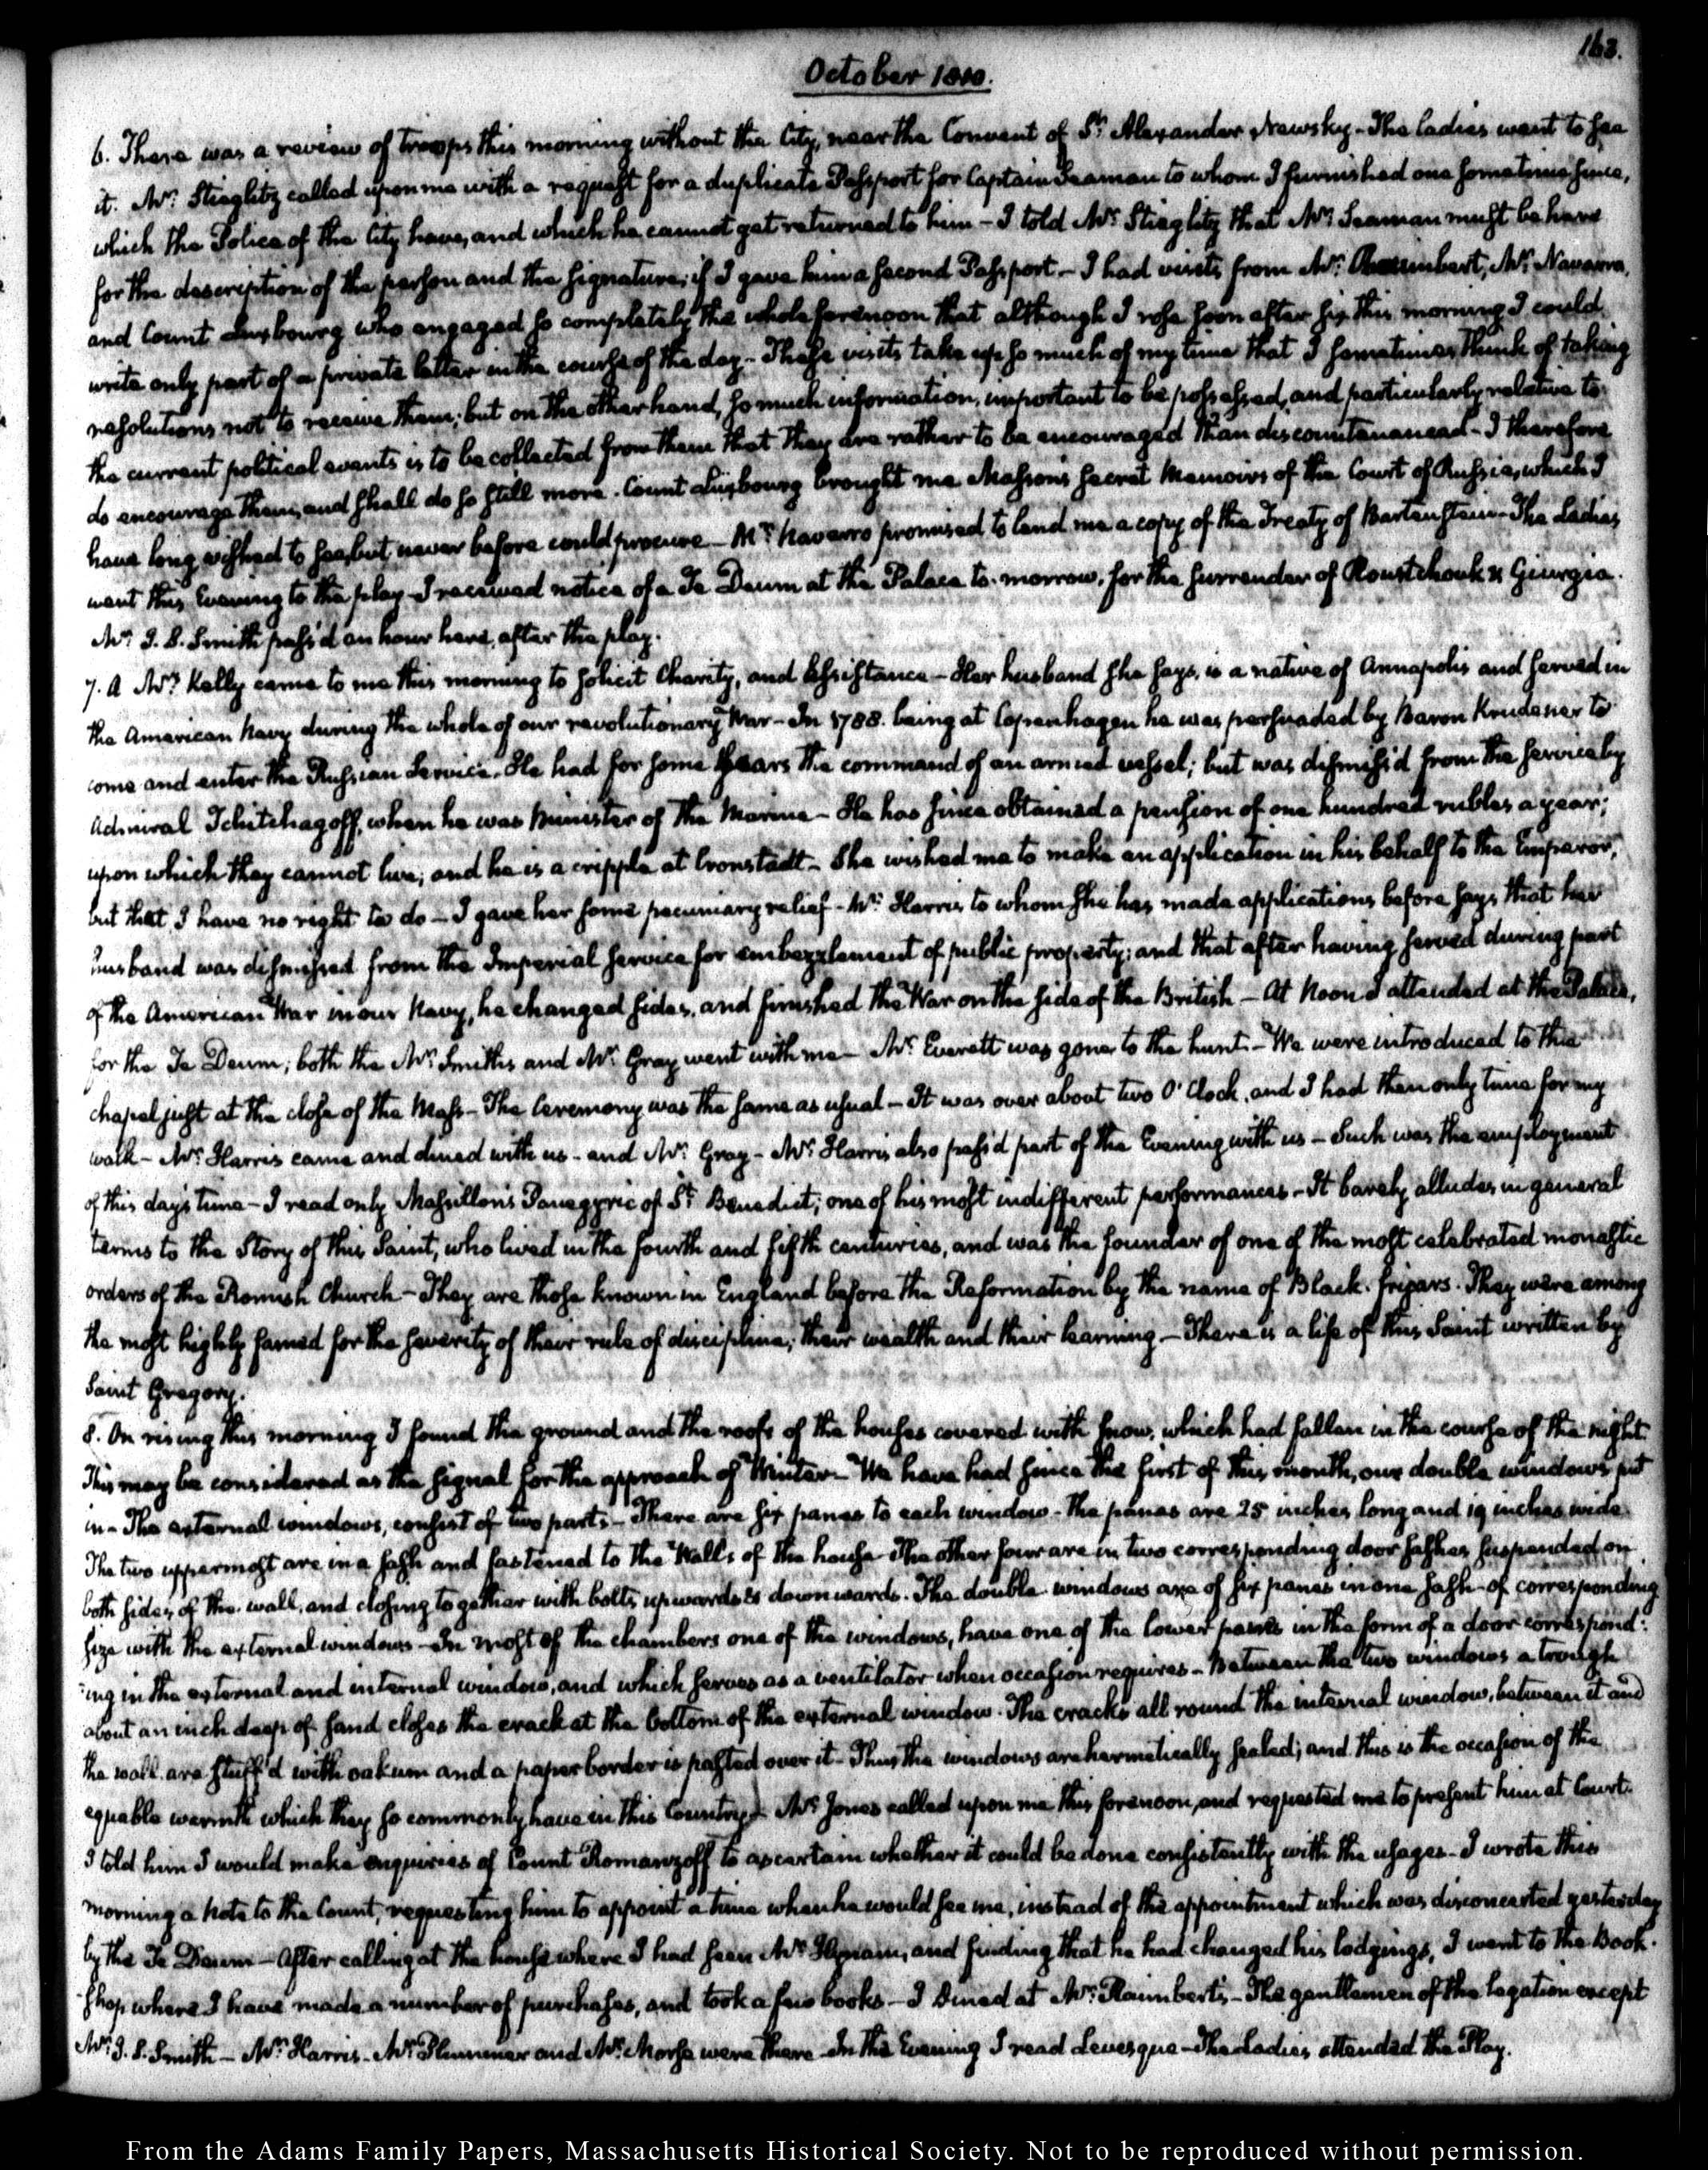 163.
October 1810.
6. There was a review of troops this morning without the City, near the Convent of St. Alexander Newsky. The ladies went to see
it. Mr. Stieglitz called upon me with a request for a duplicate Passport for Captain Seaman to whom I furnished one sometime since,
which the Police of the City have, and which he cannot get returned to him - I told Mr. Stieglitz that Mr. Seaman must be here
for the description of the person and the signature, if I gave him a second Passport. - I had visits from Mr. Navarro,
and Count Luxbourg who engaged so completely the whole forenoon that although I rose soon after six this morning I could
write only part of a private letter in the course of the day - These visits take up so much of my time that I sometimes think of taking
resolutions not to receive them; but on the other hand, so much information, important to be possessed, and particularly relative to
the current political events is to be collected from them that they are rather to be encouraged than discountenanced - I therefore
do encourage them, and shall do so still more. Count Luxbourg brought me Masson's secret Memoirs of the Court of Russia, which I
have long wished to see, but never before could procure - Mr. Navarro promised to lend me a copy of the Treaty of Bartenstein - The Ladies
went this Evening to the play - I received notice of a Te Deum at the Palace to-morrow, for the surrender of Roustchouk & Giurgio.
Mr. J. S. Smith pass'd an hour here, after the play.
7. A Mrs. Kelly came to me this morning to solicit Charity, and Assistance - Her husband she says, is a native of Annapolis and served in
the American Navy during the whole of our revolutionary War - In 1788. being at Copenhagen he was persuaded by Baron Krudener to
come and enter the Russian Service. He had for some years the command of an armed vessel; but was dismiss'd from the service by
Admiral Tchitchagoff, when he was Minister of the Marine - He has since obtained a pension of one hundred rubles a year;
upon which they cannot live; and he is a cripple at Cronstadt - She wished me to make an application in his behalf to the Emperor,
but that I have no right to do - I gave her some pecuniary relief - Mr. Harris to whom she has made applications before says that her
husband was dismissed from the Imperial service for embezzlement of public property; and that after having served during part
of the American War in our Navy, he changed sides, and finished the War on the side of the British - At Noon I attended at the Palace,
for the Te Deum; both the Mr. Smiths and Mr. Gray went with me - Mr. Everett was gone to the hunt - We were introduced to the
chapel just at the close of the Mass - The Ceremony was the same as usual - It was over about two O'Clock, and I had then only time for my
walk - Mr. Harris came and dined with us - and Mr. Gray - Mr. Harris also pass'd part of the Evening with us - Such was the employment
of this day's time - I read only Massillon's Panegyric of St. Benedict; one of his most indifferent performances - It barely alludes in general
terms to the Story of this Saint, who lived in the fourth and fifth centuries, and was the founder of one of the most celebrated monastic
orders of the Romish Church - They are those known in England before the Reformation by the name of Black-friears. They were among
the most highly famed for the severity of their rule of discipline; their wealth and their learning - There is a life of this Saint written by
Saint Gregory.
8. On rising this morning I found the ground and the roofs of the houses covered with snow, which had fallen in the course of the night.
This may be considered as the signal for the approach of Winter - We have had since the first of this month, our double windows put
in - The external windows, consist of two parts - There are six panes to each window - the panes are 25 inches long and 19 inches wide.
The two uppermost are in a sash and fastened to the Walls of the house - The other four are in two corresponding door sashes suspended on
both sides of the wall, and closing together with bolts upwards & downwards. The double windows are of six panes in one sash - of corresponding
size with the external windows - In most of the chambers one of the windows, have one of the lower panes in the form of a door correspond-
ing in the external and internal window, and which serves as a ventilator when occasion requires - Between the two windows a trough
about an inch deep of sand closes the crack at the bottom of the external window. The cracks all round the internal window, between it and
the wall are stuff'd with oakum and a paper border is pasted over it - Thus the windows are hermetically sealed; and this is the occasion of the
equable warmth which they so commonly have in this Country - Mr. Jones called upon me this forenoon, and requested me to present him at Court.
I told him I would make enquiries of Count Romanzoff to ascertain whether it could be done consistently with the usages - I wrote this
morning a Note to the Count, requesting him to appoint a time when he would see me, instead of the appointment which was disconcerted yesterday
by the Te Deum - After calling at the house where I had seen Mr. and finding that he had changed his lodgings, I went to the Book-
shop where I have made a number of purchases, and took a few books - I dined at Mr. Raimbert's - The gentlemen of the legation except
Mr. J. S. Smith - Mr. Harris - Mr. Plummer and Mr. Morse were there - In the Evening I read Levesque - The Ladies attended the Play.
From the Adams Family Papers, Massachusetts Historical Society. Not to be reproduced without permission.